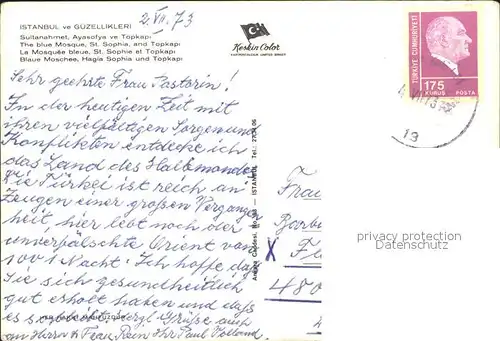 ISTANBUL ve GÜZELLIKLERI
Sultanahmet, Ayasofya ve Topkapı
The blue Mosque, St. Sophia, and Topkapı
La Mosquée bleue, St. Sophie et Topkapı
Blaue Moschee, Hagia Sophia und Topkapı
2. VII. 73
Keskin Color
TÜRKİYE CUMHURİYETİ
175
KURUŞ POSTA
19
Sehr geehrte Frau Pastorin!
In der heutigen Zeit mit
ihren vielfältigen Sorgen und
Konflikten entdecke ich
das Land des Halbmondes
Die Türkei ist reich an
Zeugen einer großen Vergangen
heit, hier lebt noch der
unverfälschte Orient von
1001 Nacht. Ich hoffe daß
Sie sich gesundheitlich
gut erholt haben und daß
es so bleibt. Herzl Grüße auch
an Herrn u Frau Rein Ihr Paul
Ankara Caddesi, No. 98 — ISTANBUL Tel.:
Frau
Fl
480
privacy protection
Datenschutz